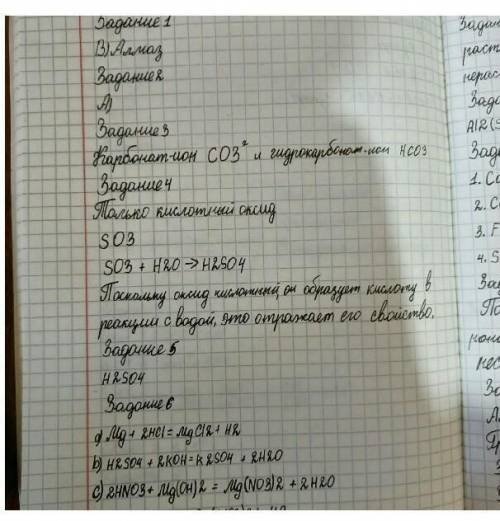 Задание 1
В) Алмаз
Задание 2
А)
Задание 3
Карбонат-ион CO3² и гидрокарбонат-ион HCO3
Задание 4
Только кислотный оксид
SO3
SO3 + H2O → H2SO4
Поскольку оксид кислотный, он образует кислоту в
реакции с водой, это отражает его свойство.
Задание 5
H2SO4
Задание 6
a) Mg + 2HCl = MgCl2 + H2
b) H2SO4 + 2KOH = K2SO4 + 2H2O
c) 2HNO3 + Mg(OH)2 = Mg(NO3)2 + 2H2O
Задан
раст
нерас
Зада
Al2(S
Зада
1. Ca
2. C
3. F
4. S
За
По
нес
За
Ал